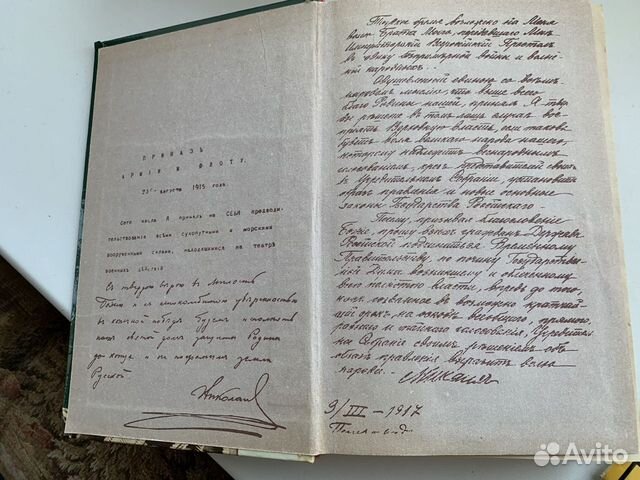 ПРИКАЗЪ
АРМІИ И ФЛОТУ.
23го августа 1915 года.
Сего числа Я принялъ на СЕБЯ предводи-
тельствованіе всѣми сухопутными и морскими
вооруженными силами, находящимися на театрѣ
военныхъ дѣйствій
Съ твердою вѣрою въ милость
Божію и съ непоколебимой увѣренностью
въ конечной побѣдѣ будемъ исполнять
нашъ святой долгъ защиты Родины
до конца и не посрамимъ земли
Русской
Николай
Тяжкое бремя возложено на Меня
волею Брата Моего, передавшего Мнѣ
Императорскій Всероссійскій Престолъ
въ годину безпримѣрной войны и волне-
ній народныхъ.
Одушевленный единою со всѣмъ
народомъ мыслію, что выше всего
благо Родины нашей, принялъ Я твер-
дое рѣшеніе въ томъ лишь случаѣ вос-
принять Верховную власть, если такова
будетъ воля великаго народа нашего,
которому надлежитъ всенароднымъ
голосованіемъ, чрезъ представителей своихъ
въ Учредительномъ Собраніи, установить
образъ правленія и новые основные
законы Государства Россійскаго
Посему, призывая благословеніе
Божіе, прошу всѣхъ гражданъ Державы
Россійской подчиниться Временному
Правительству, по почину Государствен-
ной Думы возникшему и облеченному
всею полнотою власти, впредь до того,
какъ созванное въ возможно кратчай-
шій срокъ, на основѣ всеобщаго, прямого,
равнаго и тайнаго голосованія, Учредитель-
ное Собраніе своимъ рѣшеніемъ объ
образѣ правленія выразитъ волю
народа.
Михаилъ
3/III – 1917
Петроградъ
Avito